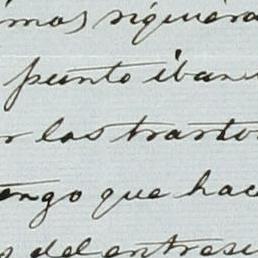 mos siquiera
punto iban
r los trasto
engo que hac
s del entresu